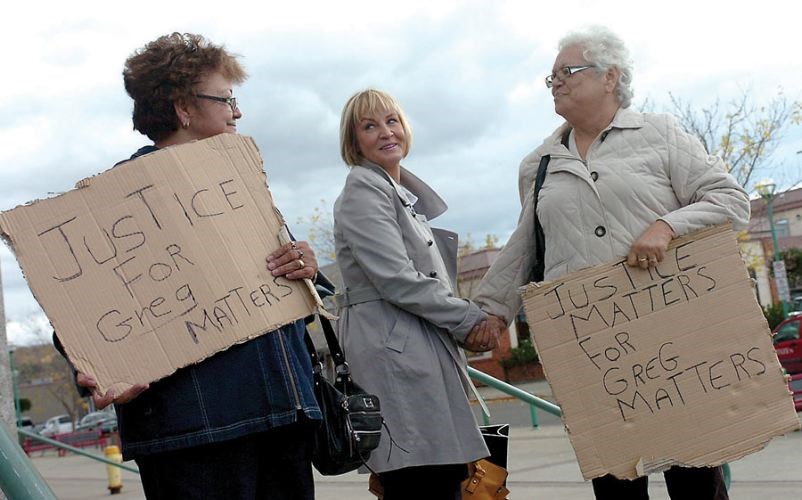 JUSTICE
FOR
Greg
MATTERS
JUSTICE
MATTERS
FOR
GREG
MATTERS